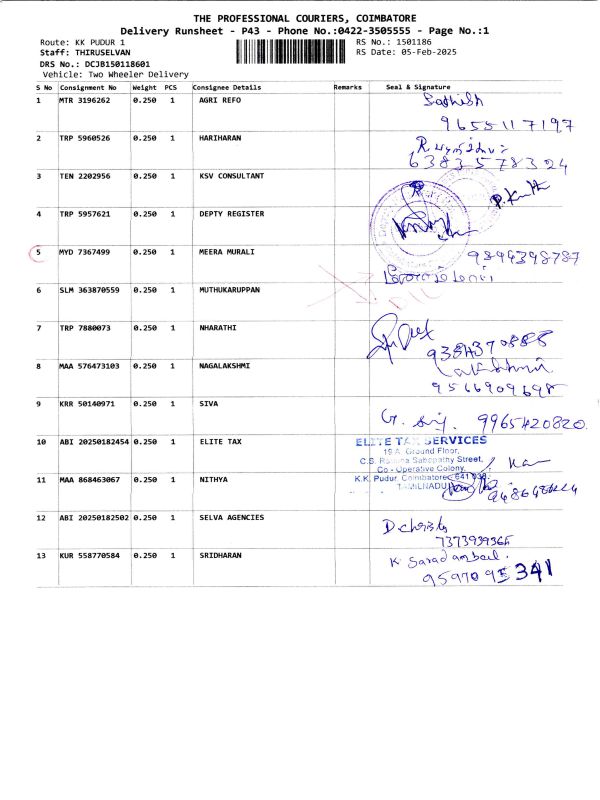 THE PROFESSIONAL COURIERS, COIMBATORE
Delivery Runsheet - P43 - Phone No.:0422-3505555 - Page No.:1
Route: KK PUDUR 1 RS No.: 1501186
Staff: THIRUSELVAN RS Date: 05-Feb-2025
DRS No.: DCJB150118601
Vehicle: Two Wheeler Delivery
S No Consignment No Weight PCS Consignee Details Remarks Seal & Signature
1 MTR 3196262 0.250 1 AGRI REFO Sathish
9655117197
2 TRP 5960526 0.250 1 HARIHARAN
6383578324
3 TEN 2202956 0.250 1 KSV CONSULTANT
4 TRP 5957621 0.250 1 DEPTY REGISTER
5 MYD 7367499 0.250 1 MEERA MURALI 9894398787
6 SLM 363870559 0.250 1 MUTHUKARUPPAN
7 TRP 7880073 0.250 1 NHARATHI
9384370888
8 MAA 576473103 0.250 1 NAGALAKSHMI Lakshmi
9566909698
9 KRR 50140971 0.250 1 SIVA 9965420820
10 ABI 20250182454 0.250 1 ELITE TAX ELITE TAX SERVICES
19 A, Ground Floor,
C.S. Sabapathy Street,
Co - Operative Colony,
11 MAA 868463067 0.250 1 NITHYA K.K. Pudur, Coimbatore
TAMILNADU
12 ABI 20250182502 0.250 1 SELVA AGENCIES
7373939365
13 KUR 558770584 0.250 1 SRIDHARAN K. Saradambal.
9597095341